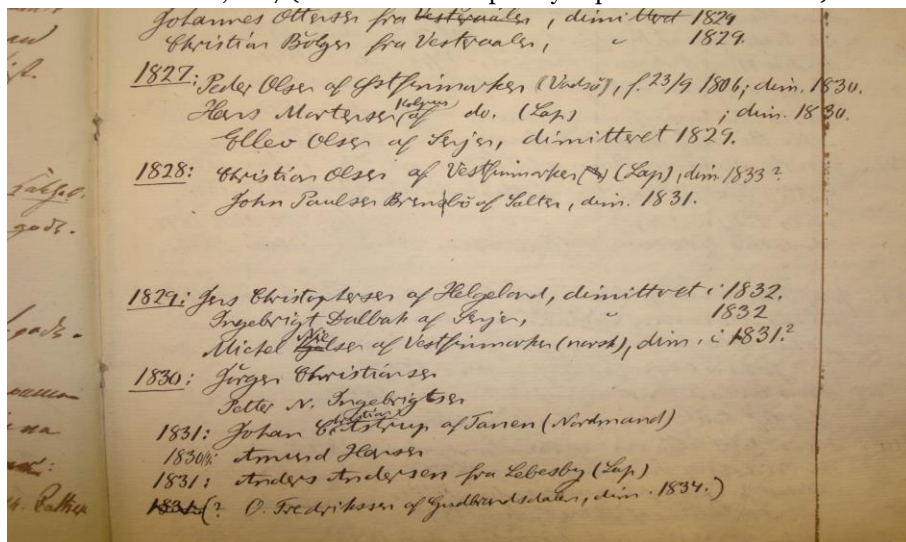 Johannes Ottersen fra Vesteraalen, dimitteret 1829
Christian Bolger fra Vesteraalen, " 1829.
1827: Peder Olsen af Østfinmarken (Vadsø), f. 23/9 1806; dim. 1830.
Hans Mortensen af do. (Lap) ; dim. 1830.
Ellev Olsen af Senjen, dimitteret 1829.
1828: Christian Olsen af Vestfinmarken (Lap), dim. 1833?
John Paulsen af Salten, dim. 1831.
1829: Jens Christophersen af Helgeland, dimitteret i 1832.
Ingebrigt Dalbak af Senjen, " 1832
Michel Nielsen af Vestfinmarken (norsk), dim. i 1831.?
1830: Jørgen Christiansen
Petter N. Ingebrigtsen
1831: Johan Christian af Tanen (Nordmand)
1830/31: Amund Hansen
1831: Anders Andersen fra Lebesby (Lap)
1831 (? O. Fredriksen af Gudbrandsdalen, dim. 1834.)
Takfal.
gods.
gods.